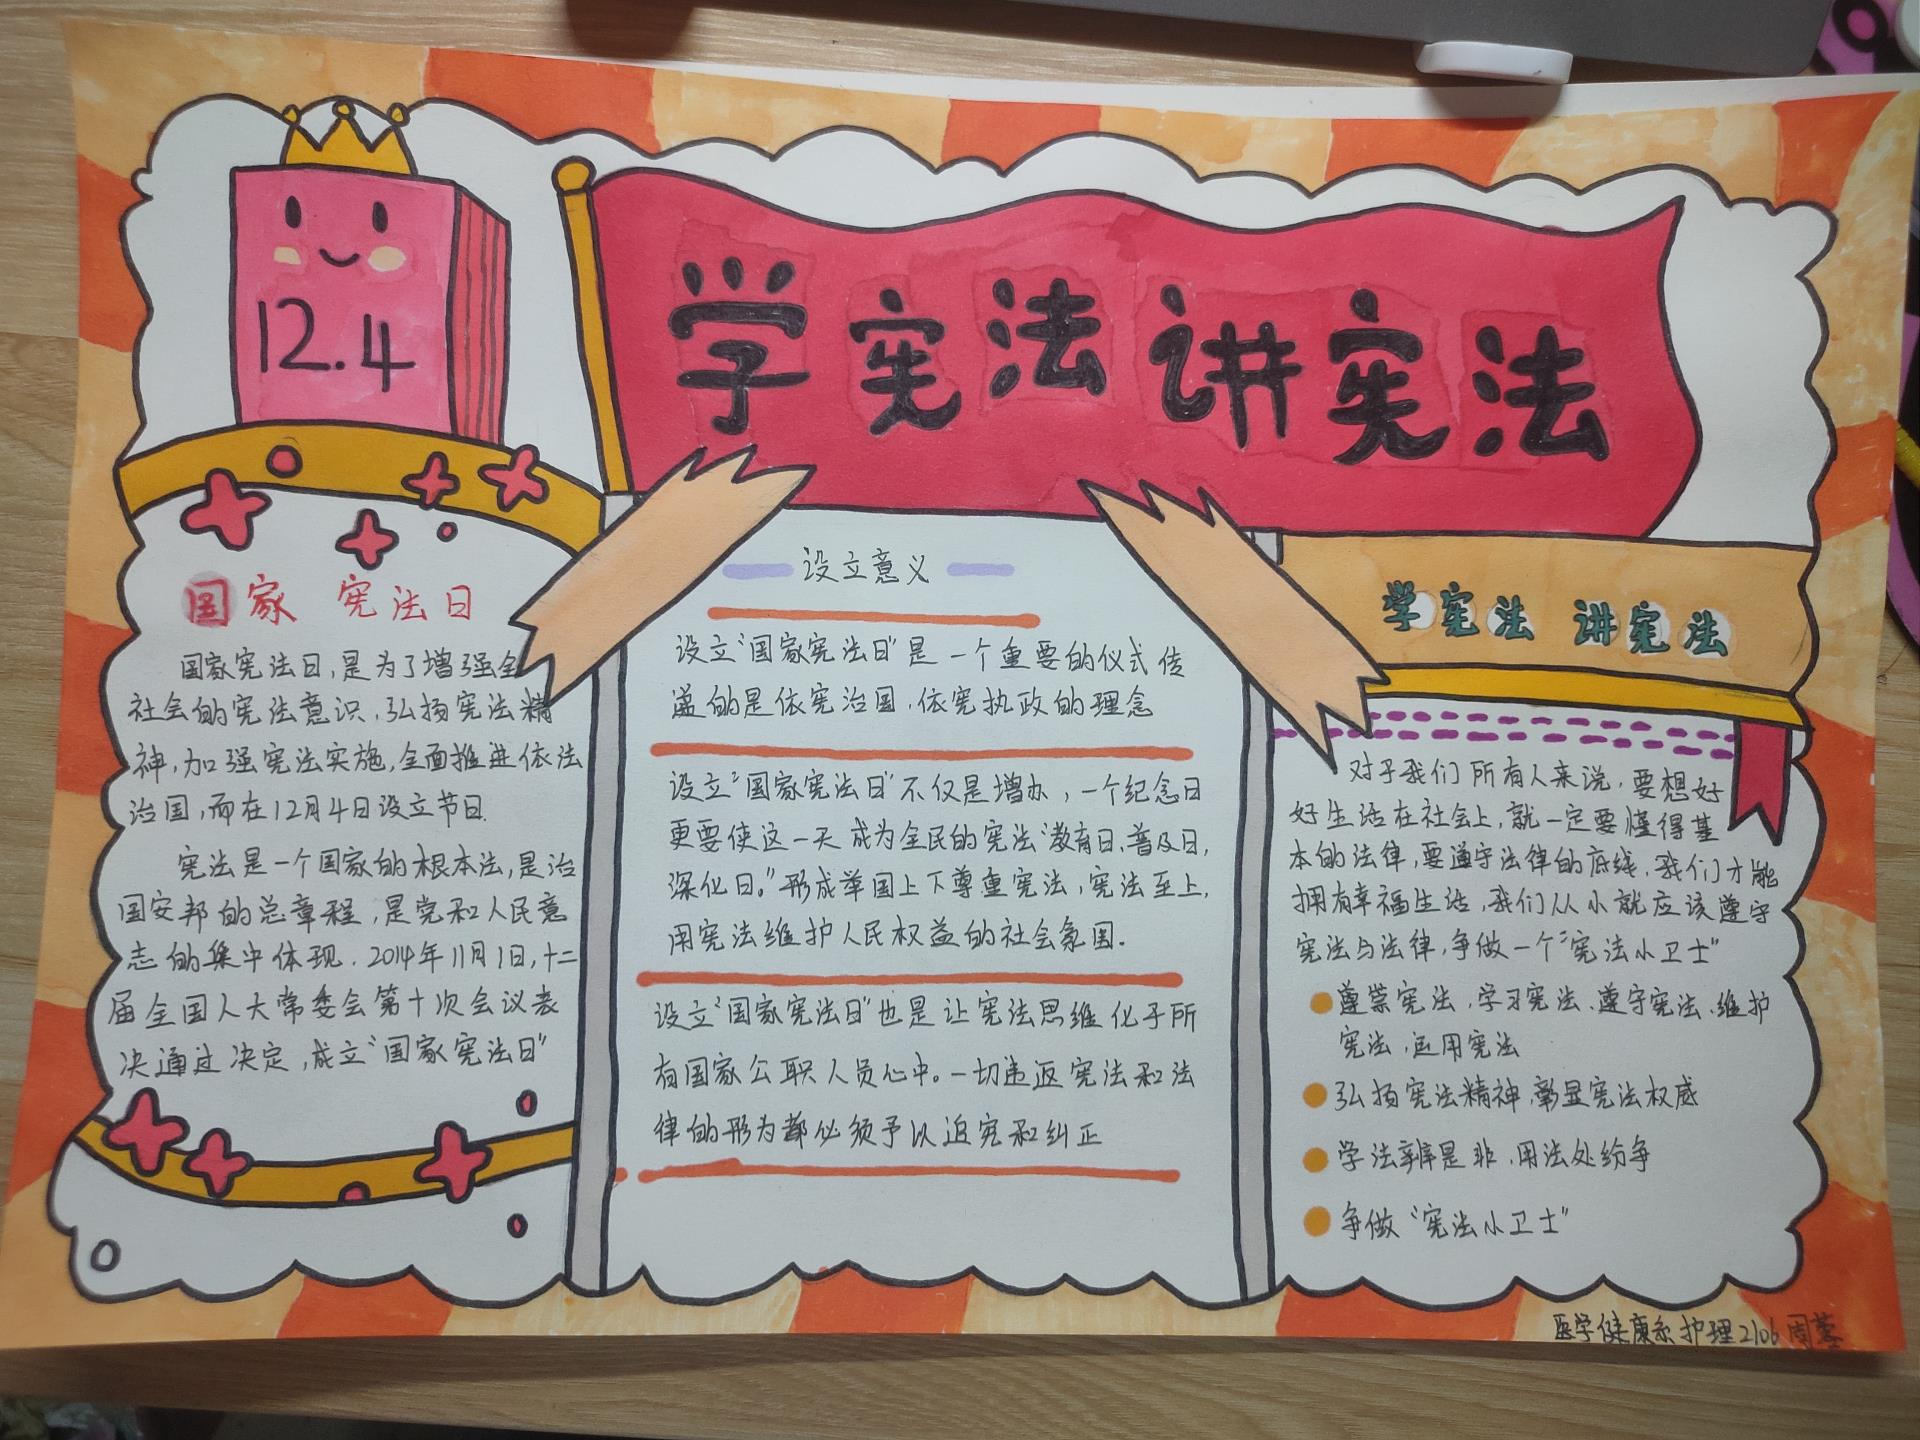 12.4
学宪法讲宪法
国家 宪法日
国家宪法日,是为了增强全
社会的宪法意识,弘扬宪法精
神,加强宪法实施,全面推进依法
治国,而在12月4日设立节日.
宪法是一个国家的根本法,是治
国安邦的总章程,是党和人民意
志的集中体现.2014年11月1日,十二
届全国人大常委会第十次会议表
决通过决定,成立“国家宪法日”
设立意义
设立“国家宪法日”是一个重要的仪式传
递的是依宪治国,依宪执政的理念
设立“国家宪法日”不仅是增办,一个纪念日
更要使这一天成为全民的宪法“教育日、普及日,
深化日。”形成举国上下尊重宪法,宪法至上,
用宪法维护人民权益的社会氛围.
设立“国家宪法日”也是让宪法思维化于所
有国家公职人员心中。一切违返宪法和法
律的形为都必须予以追究和纠正
学宪法 讲宪法
对于我们所有人来说,要想好
好生活在社会上,就一定要懂得基
本的法律,要遵守法律的底线,我们才能
拥有幸福生活,我们从小就应该遵守
宪法与法律,争做一个“宪法小卫士”
遵崇宪法,学习宪法、遵守宪法、维护
宪法,运用宪法
弘扬宪法精神,彰显宪法权威
学法辨是非,用法处纷争
争做“宪法小卫士”
医学健康系护理2106周